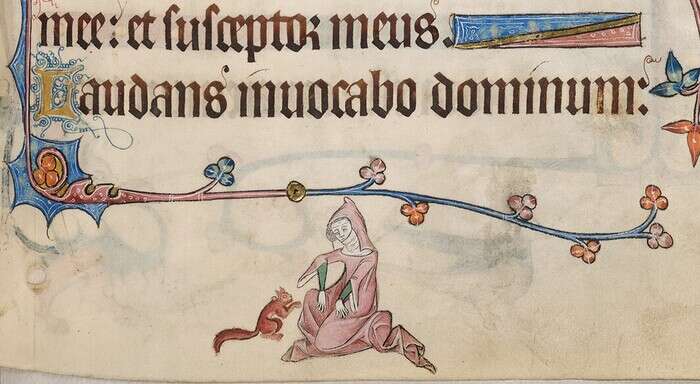 mee: et susceptor meus.
Laudans inuocabo dominum: